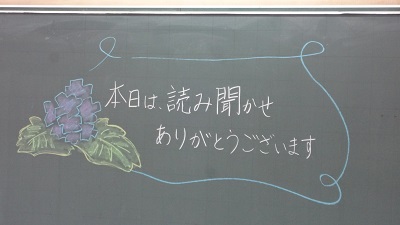 本日は、読み聞かせ
ありがとうございます